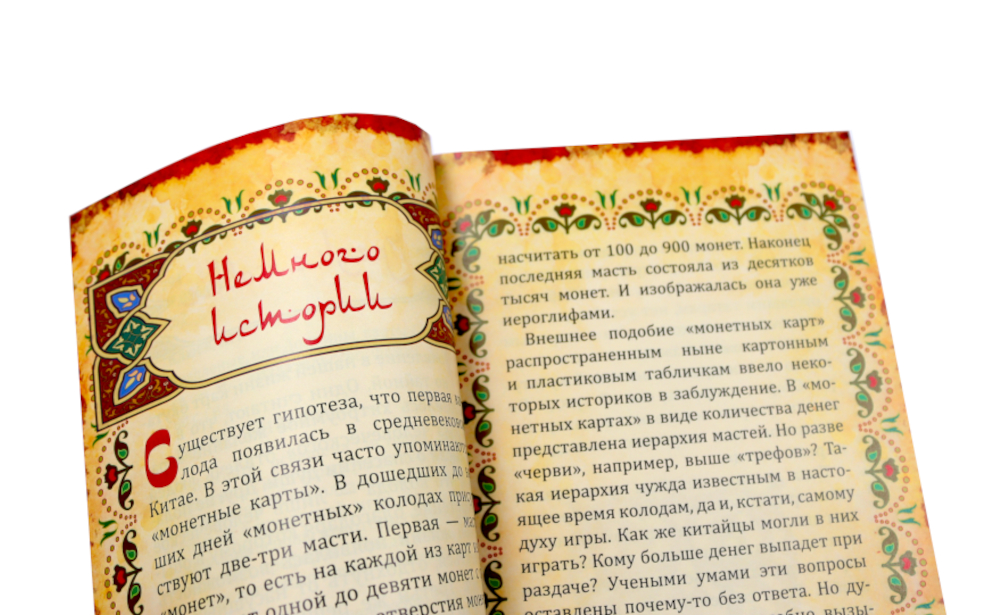 Немного
истории
Существует гипотеза, что первая
лода появилась в средневеков
Китае. В этой связи часто упоминают
«монетные карты». В дошедших до
ших дней «монетных» колодах
ствуют две-три масти. Первая —
«монет», то есть на каждой из карт
одной до девяти монет
отверстия
насчитать от 100 до 900 монет. Наконец
последняя масть состояла из десятков
тысяч монет. И изображалась она уже
иероглифами.
Внешнее подобие «монетных карт»
распространенным ныне картонным
и пластиковым табличкам ввело неко-
торых историков в заблуждение. В «мо-
нетных картах» в виде количества денег
представлена иерархия мастей. Но разве
«черви», например, выше «трефов»? Та-
кая иерархия чужда известным в насто-
ящее время колодам, да и, кстати, самому
духу игры. Как же китайцы могли в них
играть? Кому больше денег выпадет при
раздаче? Учеными умами эти вопросы
оставлены почему-то без ответа. Но ду-